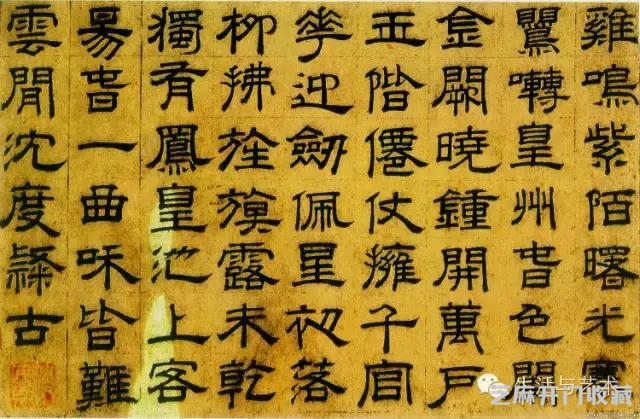 雞鳴紫陌曙光寒
鸎囀皇州旾色闌
金闕曉鍾開萬戶
玉階僊仗擁千官
華迎劒佩星初落
柳拂旌旗露未乾
獨有鳳皇池上客
昜旾一曲咊皆難
雲閒沈度隸古
生活与艺术
芝麻开门收藏